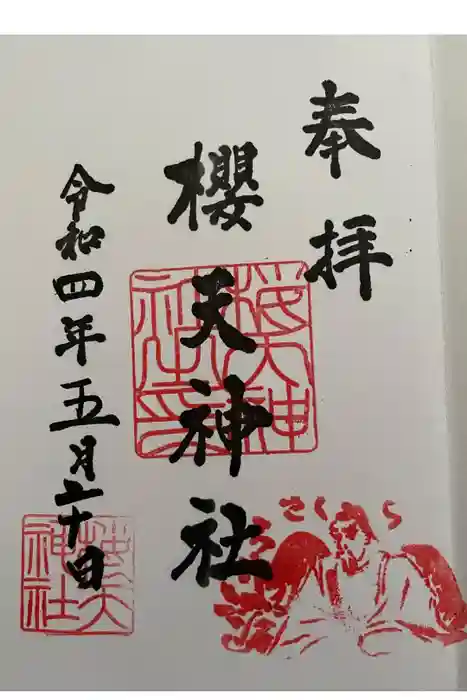 奉拝
櫻天神社
令和四年五月二十日
桜天神
社之印
さくら
桜天
神社